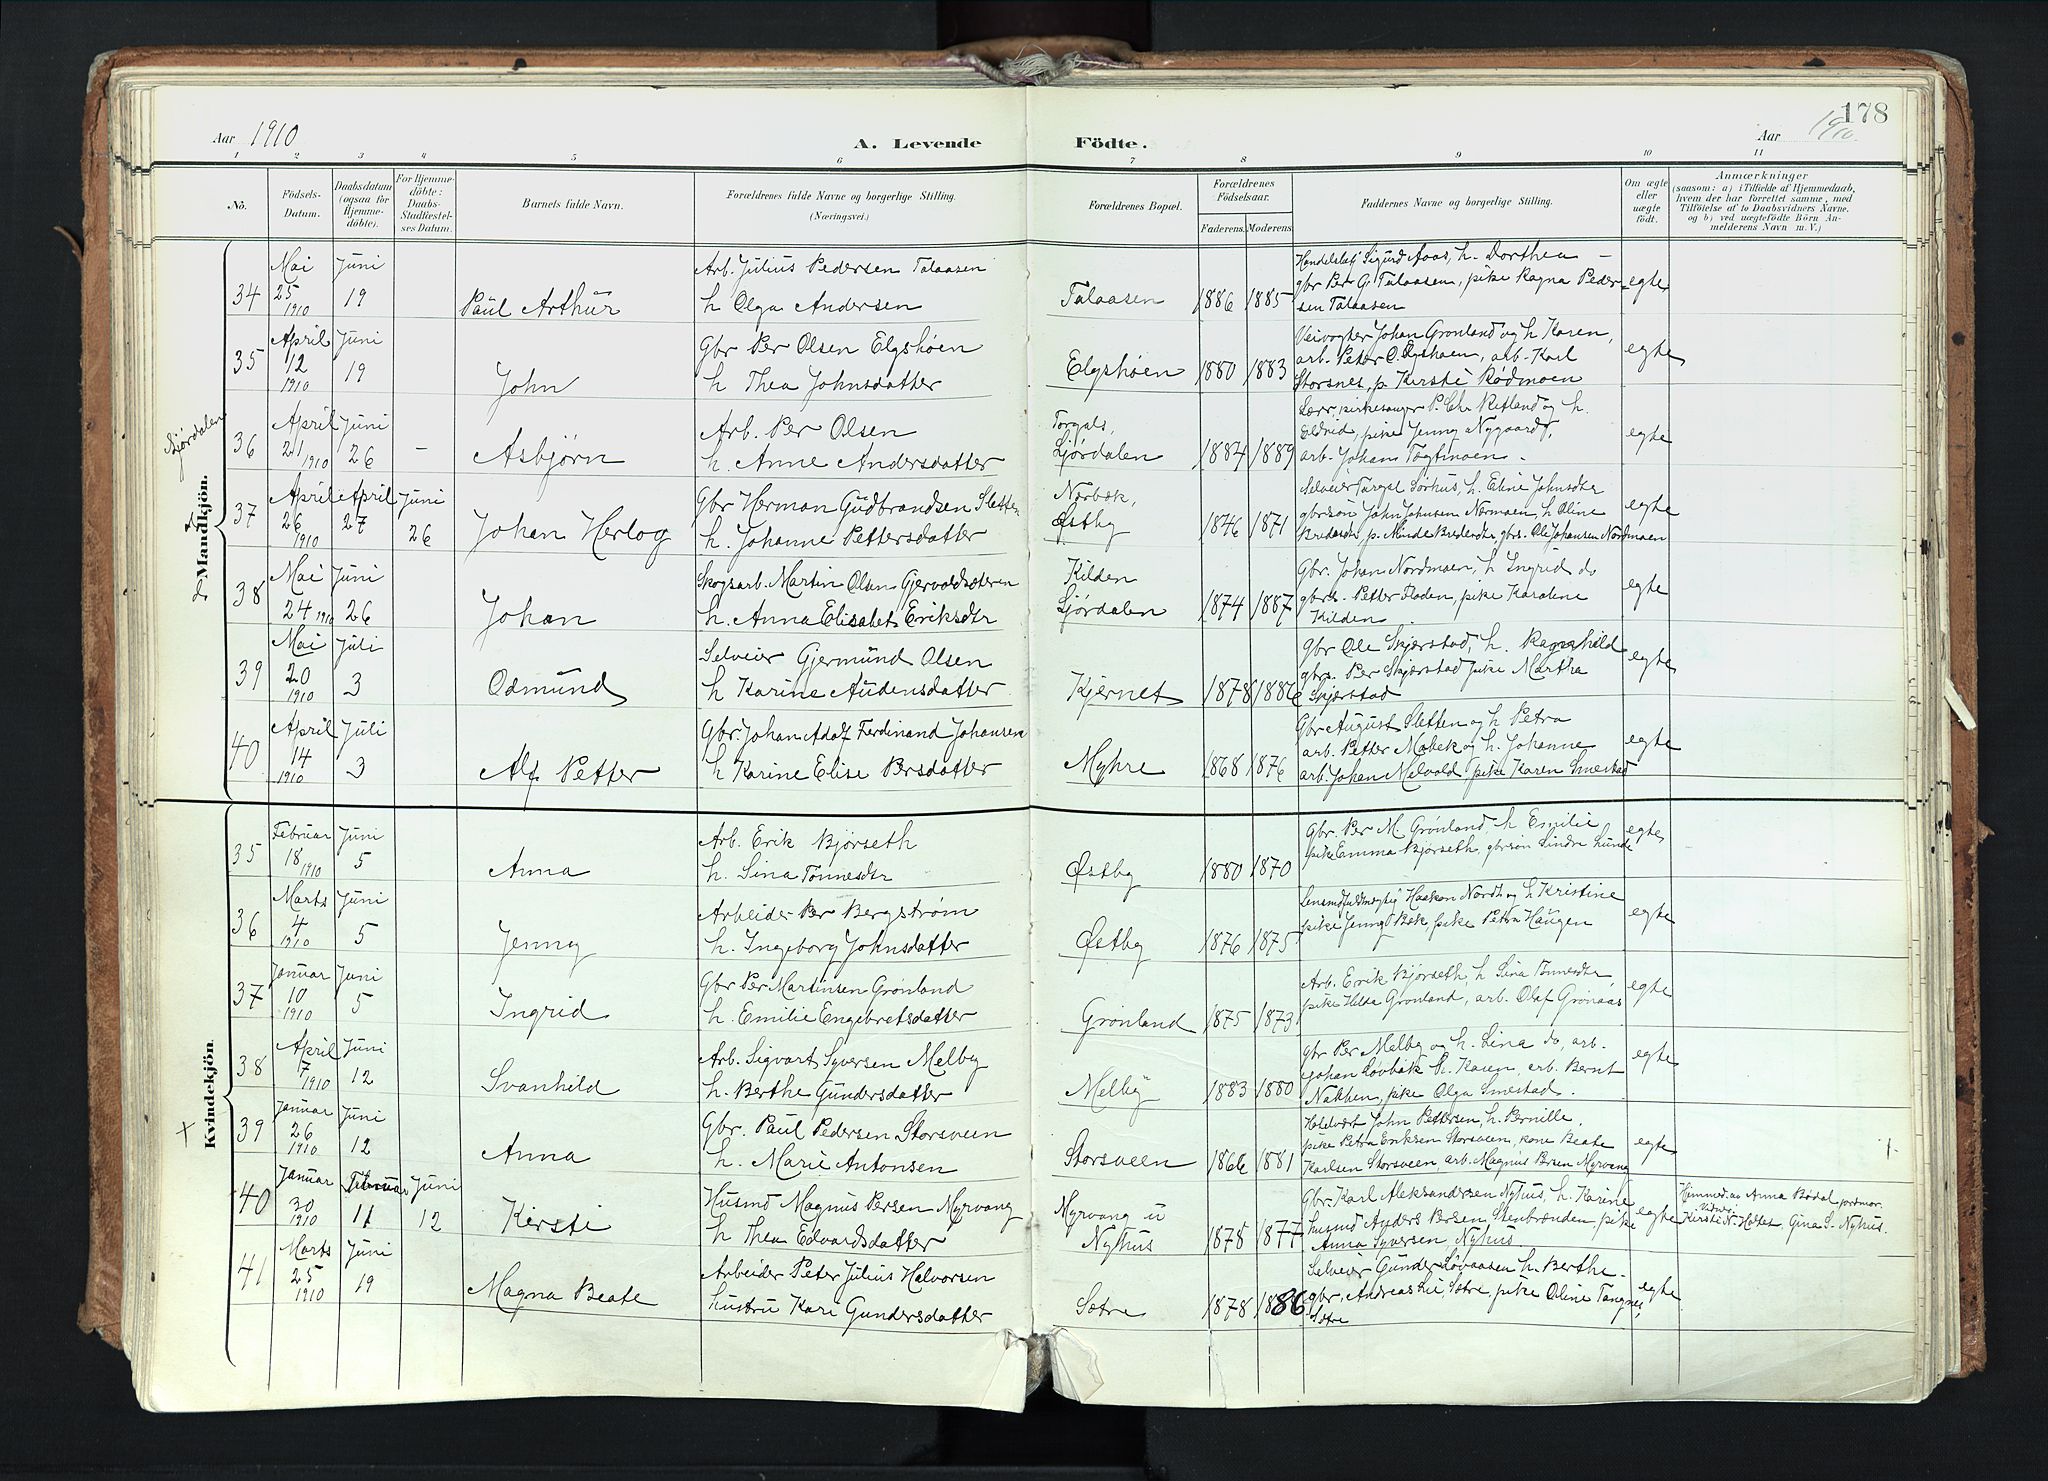 178
Aar 1910
A. Levende
Födte.
Aar 1910.
1 2 3 4 5 6 7 8 9 10 11
No.
Födsels-
Datum.
Daabsdatum
(ogsaa for
Hjemme-
döbte).
For Hjemme-
döbte:
Daabs-
Stadfæstel-
ses Datum.
Barnets fulde Navn.
Forældrenes fulde Navne og borgerlige Stilling.
(Næringsvei.)
Forældrenes Bopæl.
Forældrenes
Födselsaar.
Faderens.
Moderens.
Faddernes Navne og borgerlige Stilling.
Om ægte
eller
uægte
födt.
Anmærkninger
(saasom: a) i Tilfælde af Hjemmedaab,
hvem der har forrettet samme, med
Tilföielse af to Daabsvidners Navne.
og b) ved uægtefödte Börn An-
melderens Navn m. V.)
Mandkjön.
34
Mai
25
1910
Juni
19
Paul Arthur
Arb. Julius Pedersen Talaasen
h Olga Andersen
Talaasen
1886
1885
Handelsbetj Sigurd Aaas, h. Dorthea –
gbr Per G. Talaasen, pike Ragna Peder-
sen Talaasen
egte
35
April
12
1910
Juni
19
John
Gbr Per Olsen Elgshøen
h Thea Johnsdatter
Elgshøen
1880
1883
Veivogter Johan Grønland og h Karen,
arb. Peter O. Elgshøen, arb. Karl
Storsnes, p Kirsti Rødmoen
egte
Ljørdalen
36
April
21
1910
Juni
26
–
Asbjørn
Arb. Per Olsen
h. Anne Andersdatter
Torgals,
Ljørdalen
1884
1889
Lær, kirkesanger P. Chr Retland og h.
Eldrid, pike Jenny Nygaard,
arb. Johan Tøgtmoen.
egte
37
April
26
1910
April
27
Juni
26
Johan Herlog
Gbr Herman Gudbrandsen Sletten
h. Johanne Pettersdatter
Nørbæk,
Østby
1876
1871
Selveier Torgal Sørhus, h. Eline Johnsdtr
gbrsøn John Johnsen Nermoen, h Oline
Bredesdtr, p. Minda Bredesdtr, gbrs. Ole Johansen Nordmoen
egte
38
Mai
24 1910
Juni
26
Johan
Skogsarb. Martin Olsen Gjervoldsæteren
h. Anna Elisabet Eriksdtr
Kilden
Ljørdalen
1874
1887
Gbr. Johan Nordmoen, h Ingrid do
gbrs. Petter Floden, pike Karoline
Kilden
egte
39
Mai
20
1910
Juli
3
Odmund
Selveier Gjermund Olsen
h Karine Audensdatter
Kjernet
1878
1886
Gbr Ole Skjærstad, h. Ragnhild
gbrs. Per Skjærstad pike Martha
Skjærstad
egte
40
April
14
1910
Juli
3
Alf Petter
Gbr. Johan Adolf Ferdinand Johansen
h Karine Elise Persdatter
Myhre
1868
1876
Gbr August Sletten og h Petra
arb. Petter Mobek og h. Johanne
arb. Johan Melvold, pike Karen Smestad
egte
Kvindekjön.
35
Februar
18 1910
Juni
5
Anna
Arb. Erik Bjørseth
h. Sina Tønnesdtr
Østby
1880
1870
Gbr. Per M. Grønland, h Emilie
pike Emma Bjørseth, gbrsøn Sindre Lunde
egte
36
Marts
4
1910
Juni
5
Jenny
Arbeider Per Bergstrøm
h. Ingeborg Johnsdatter
Østby
1876
1875
Lensmdfuldmægtig Haakon Nordt og h Kristine
pike Jenny Bek, pike Petra Haugen
egte
37
Januar
10
1910
Juni
5
Ingrid
Gbr Per Martinsen Grønland
h. Emilie Engebretsdatter
Grønland
1875
1873
Arb. Erik Bjørseth, h Sina Tønnesdtr
pike Hilda Grønland, arb. Olaf Grønaas
egte
38
April
7
1910
Juni
12
Svanhild
Arb. Sigvart Syversen Melby
h. Berthe Gundersdatter
Melby
1883
1880
Gbr Per Melby og h. Lina do, arb.
Johan Løvbæk h. Karen, arb. Bernt
Nabben, pike Olga Smestad.
egte
×
39
Januar
26
1910
Juni
12
Anna
Gbr. Paul Pedersen Storsveen
h. Marie Antonsen
Storsveen
1866
1881
John Pettersen, h. Pernille.
pike Petra Eriksen Storsveen, kone Beate
Karlsen Storsveen, arb. Magnus Persen Myrvang
egte
40
Januar
30
1910
Februar
11
Juni
12
Kirsti
Husmd Magnus Persen Myrvang
h Thea Edvardsdatter
Myrvang u
Nyhus
1878
1877
Gbr. Karl Aleksandersen Nyhus, h. Karine
husmd Anders Persen Stenbrænden, pike
Anna Syversen Nyhus
egte
Hjemmed. av Anna Bødal jordmor.
Vidner
Kirsti N. Holtet Gina S. Nyhus.
41
Marts
25
1910
Juni
19
Magna Beate
Arbeider Peter Julius Halvorsen
hustru Kari Gundersdatter
Sætre
1878
1886
Selveier Gunder Løvaasen h. Berthe.
gbr. Andreas Sætre, pike Oline Tangnes,
Sætre
egte